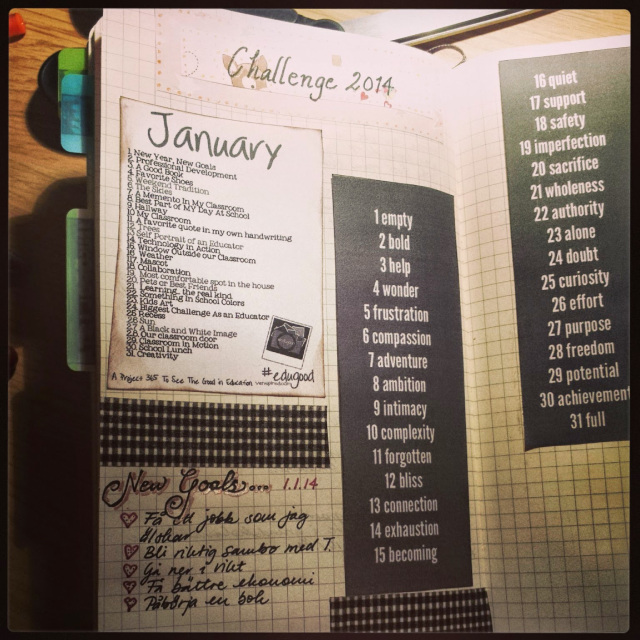 Challenge 2014
January
1. New Year, New Goals
2. Professional Development
3. A Good Book
4. Favorite Shoes
5. Weekend Tradition
6. The Skies
7. A Memento In My Classroom
8. Best Part of MY Day At School
9. Hallway
10. My Classroom
11. A favorite quote in my own handwriting
12. Trees
13. Self Portrait of an Educator
14. Technology in Action
15. Window Outside our Classroom
16. Weather
17. Mascot
18. Collaboration
19. Most comfortable spot in the house
20. Pets or Best Friends
21. Learning, the real kind
22. Something In School Colors
23. Kids Art
24. Biggest Challenge As an Educator
25. Recess
26. Sun
27. A Black and White Image
28. Our classroom door
29. Classroom in Motion
30. School Lunch
31. Creativity
#edugood
A Project 365 To See The Good in Education
New Goals... 1.1.14
Få ett jobb som jag
älskar
Bli riktig sambo med T.
Gå ner i vikt
Få bättre ekonomi
Påbörja en bok
1 empty
2 bold
3 help
4 wonder
5 frustration
6 compassion
7 adventure
8 ambition
9 intimacy
10 complexity
11 forgotten
12 bliss
13 connection
14 exhaustion
15 becoming
16 quiet
17 support
18 safety
19 imperfection
20 sacrifice
21 wholeness
22 authority
23 alone
24 doubt
25 curiosity
26 effort
27 purpose
28 freedom
29 potential
30 achievement
31 full